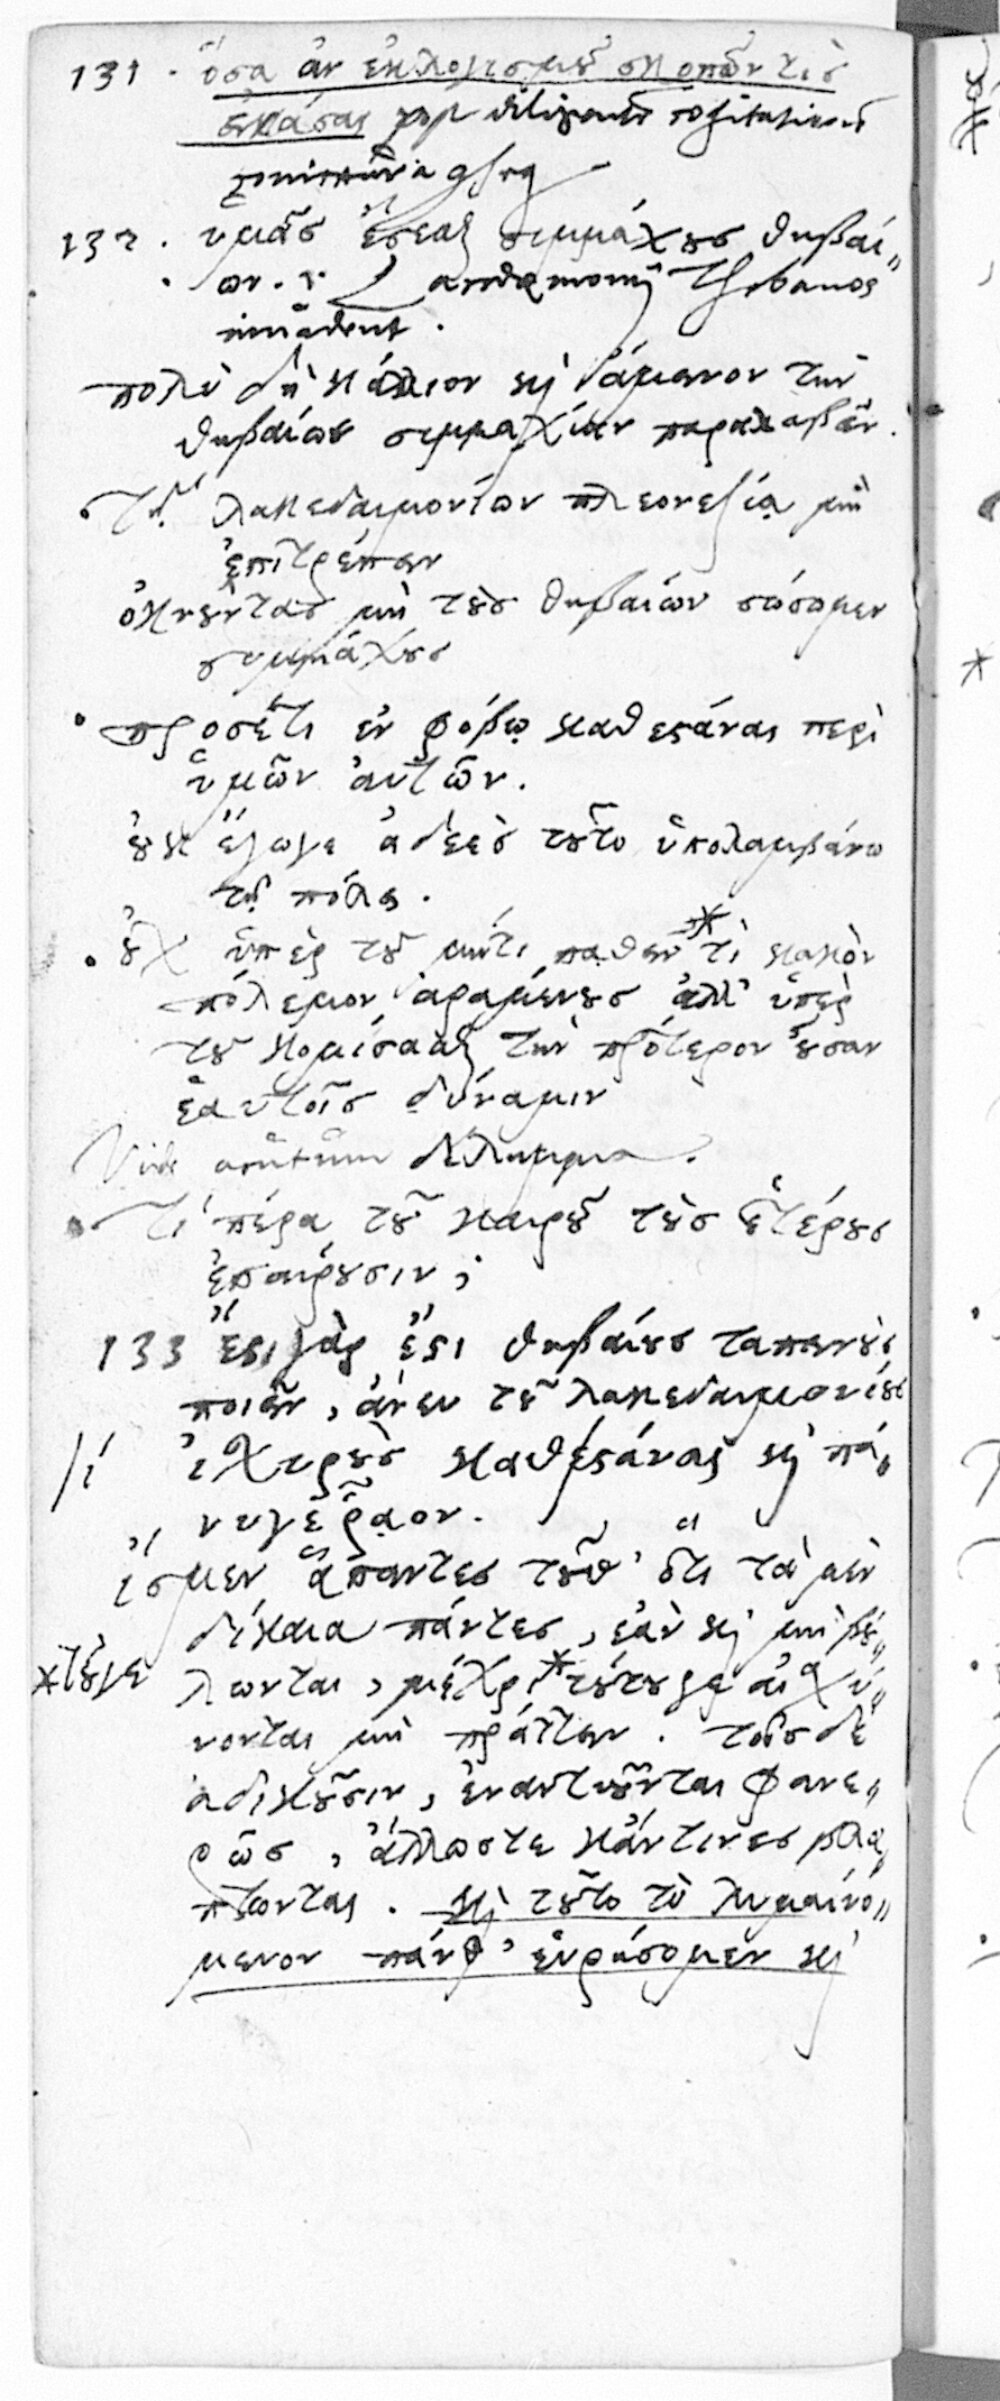 131 . ὅσα ἂν ἐκλογισμοῦ σκοπῶν τὶς
εἰκάσαι diligenti cogitatione
132 . ὑμᾶς ἔσεσθαι συμμάχους Θηβαί„
ων . Lacedaemonii Thebanos
invadent .
πολὺ δὴ κάλλιον καὶ ἄμεινον τὴν
Θηβαίων συμμαχίαν παραλαβεῖν .
τῇ Λακεδαιμονίων πλεονεξίᾳ μὴ
ἐπιτρέπειν
ὀκνοῦντας μὴ τοὺς Θηβαίων σώσομεν
συμμάχους
προσέτι ἐν φόβῳ καθεστάναι περὶ
ὑμῶν αὐτῶν .
οὐκ ἔγωγε ἀδεὲς τοῦτο ὑπολαμβάνω
τῇ πόλει .
οὐχ ὑπὲρ τοῦ μήτι παθεῖν * τὶ κακὸν
πόλεμον ἀραμένους ἀλλ' ὑπὲρ
τοῦ κομίσασθαι τὴν πρότερον οὖσαν
ἑαυτοῖς δύναμιν
Vide acutum δίλημμα .
τί πέρα τοῦ καιροῦ τοὺς ἑτέρους
ἐπαίρουσιν ;
133 ἔστι γὰρ ἔστι Θηβαίους ταπεινοὺς
ποιεῖν , ἄνευ τοῦ Λακεδαιμονίους
/ί ἰσχυροὺς καθεστάναι καὶ πά„
νυγε ῥᾷον .
ἴσμεν ἅπαντες τοῦθ' ὅτι τὰ μὲν
δίκαια πάντες , ἐὰν καὶ μὴ βού„
*τοῦγε λωνται , μέχρι * τούτου γε αἰσχύ„
νονται μὴ πράττειν . τοῖς δὲ
ἀδικοῦσιν , ἐναντιοῦνται φανε„
ρῶς , ἄλλωστε κἄν τινες βλά„
πτωνται . καὶ τοῦτο τὸ λυμαινό„
μενον πάνθ' εὑρήσομεν καὶ